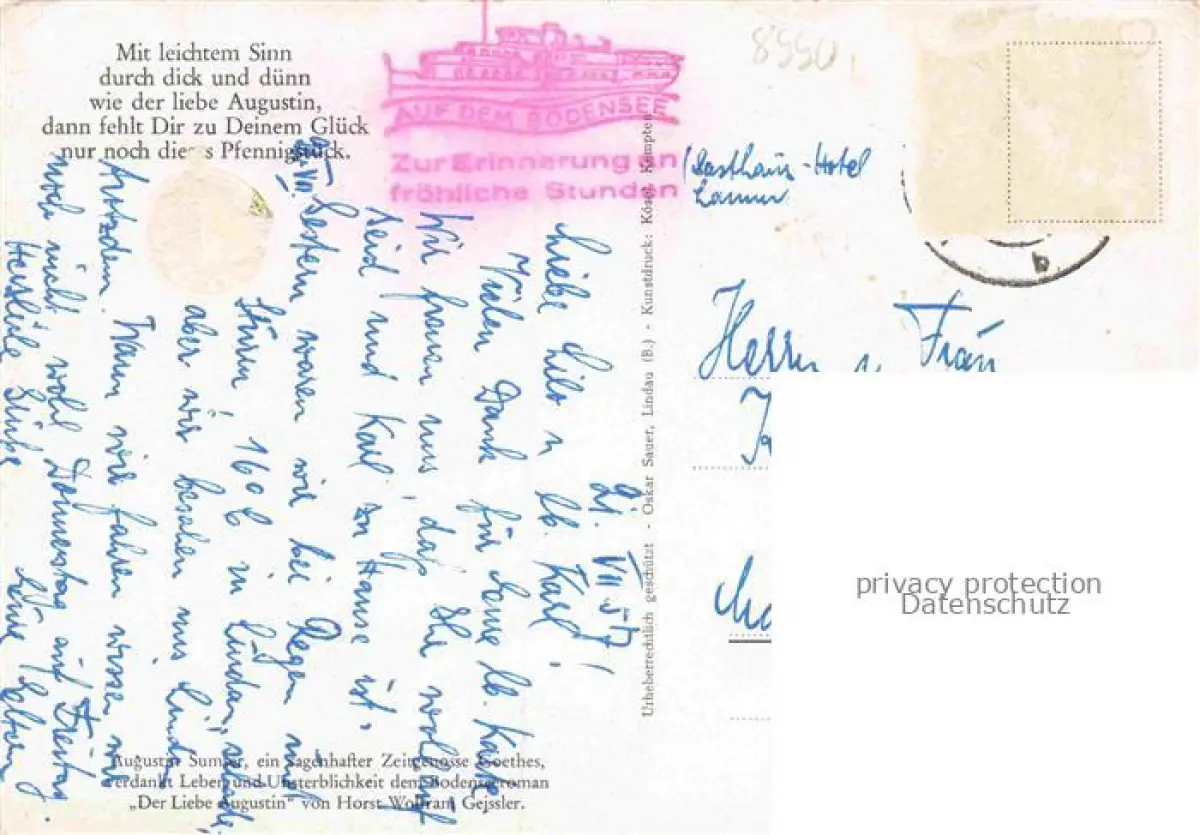 Mit leichtem Sinn
durch dick und dünn
wie der liebe Augustin,
dann fehlt Dir zu Deinem Glück
nur noch dieses Pfennigstück.
AUF DEM BODENSEE
Zur Erinnerung an
fröhliche Stunden
8990
Gasthaus-Hotel
b
Herrn u Frau
privacy protection
Datenschutz
Urheberrechtlich geschützt - Oskar Sauer, Lindau (B.) - Kunstdruck: Kösel, Kempten
21. VII 57
Liebe Lilo u lb. Karl!
Vielen Dank für Deine lb. Karte
Wir freuen uns, daß Ihr wohlauf
seid und Karl zu Hause ist.
Gestern waren wir bei Regen und
Sturm, 16° C in Lindau,
aber wir besahen uns Lindau
trotzdem. Wann wir fahren wissen wir
noch nicht, wohl Donnerstag auf Freitag.
Herzliche Grüße
Augustin Sumser, ein sagenhafter Zeitgenosse Goethes,
verdankt Leben und Unsterblichkeit dem Bodenseeroman
„Der Liebe Augustin" von Horst Wolfram Geissler.